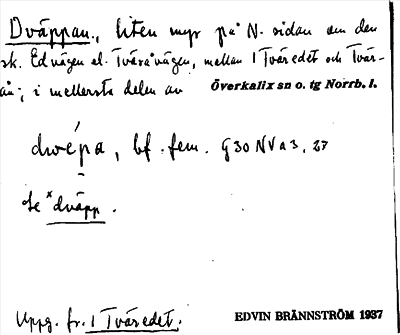 Dväppan., liten myr på N. sidan om den
sk. Edvägen el. Tväråvägen, mellan 1 Tväredet och Tvär-
ån; i mellersta delen av Överkalix sn o. tg Norrb. l.
dwépa, bf. fem. G30 NV a 3, 27
Se *dväpp.
Uppg. fr. 1 Tväredet. EDVIN BRÄNNSTRÖM 1937